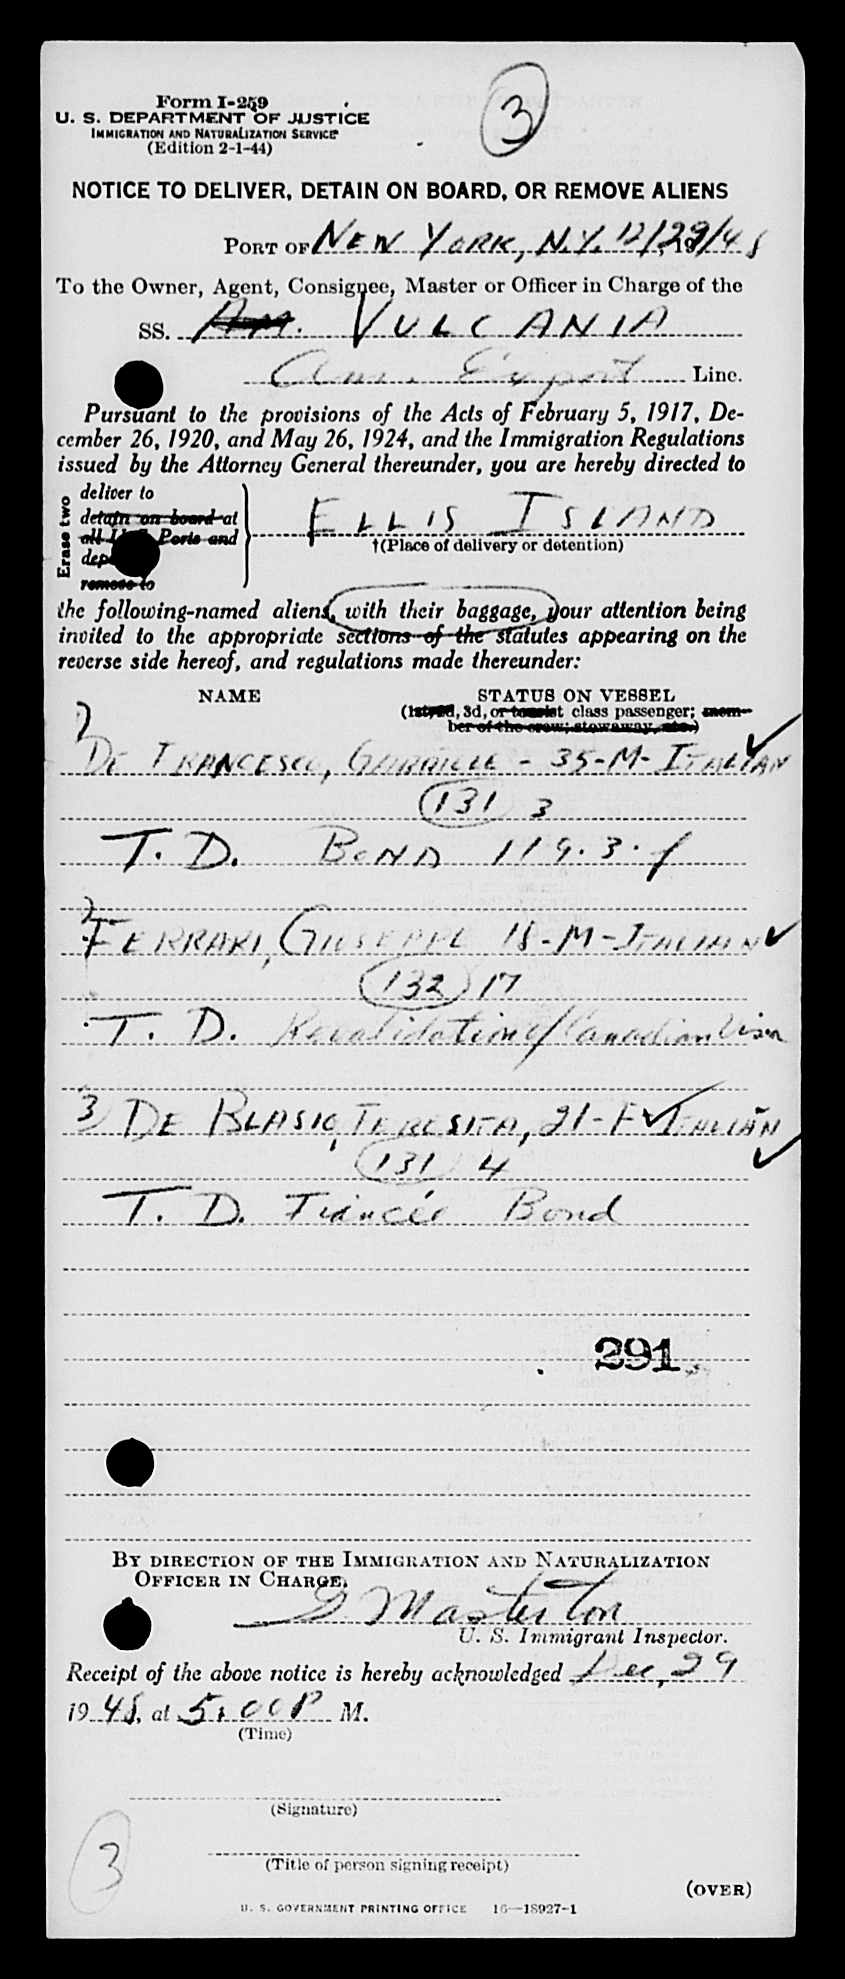 3
Form I-259
U. S. DEPARTMENT OF JUSTICE
IMMIGRATION AND NATURALIZATION SERVICE
(Edition 2-1-44)
NOTICE TO DELIVER, DETAIN ON BOARD, OR REMOVE ALIENS
PORT OF NEW YORK, N.Y. 12/29/48
To the Owner, Agent, Consignee, Master or Officer in Charge of the
SS. Am. VULCANIA
Am. Export Line.
Pursuant to the provisions of the Acts of February 5, 1917, De-
cember 26, 1920, and May 26, 1924, and the Immigration Regulations
issued by the Attorney General thereunder, you are hereby directed to
Erase two
deliver to
detain on board at
all U. S. Ports and
remove to
ELLIS ISLAND
†(Place of delivery or detention)
the following-named aliens, with their baggage, your attention being
invited to the appropriate sections of the statutes appearing on the
reverse side hereof, and regulations made thereunder:
NAME STATUS ON VESSEL
(1st, 2d, 3d, or tourist class passenger; mem-
ber of the crew; stowaway, etc.)
DE FRANCESCO, - 35-M- ITALIAN
131 3
T. D. BOND 119.3.f
FERRARI, GIUSEPPE 18-M-ITALIAN
132 17
T. D. Revalidation of Canadian Visa
3 DE BLASIO, TERESITA, 21-F ITALIAN
131 4
T. D. Fiancée Bond
291
BY DIRECTION OF THE IMMIGRATION AND NATURALIZATION
OFFICER IN CHARGE.
G Masterton
U. S. Immigrant Inspector.
Receipt of the above notice is hereby acknowledged Dec, 29
1948, at 5:00 P M.
(Time)
(Signature)
3
(Title of person signing receipt)
(OVER)
U. S. GOVERNMENT PRINTING OFFICE 16—18927-1